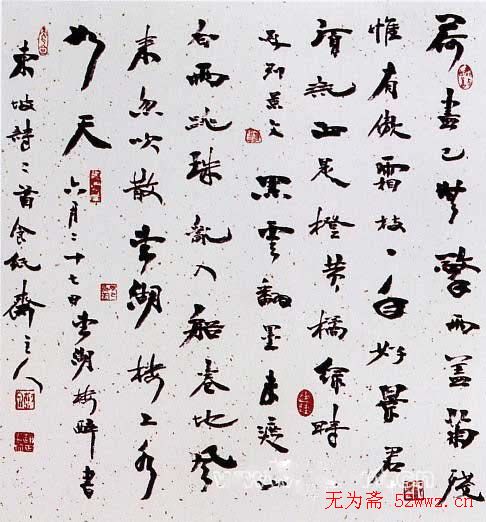 荷盡已無擎雨蓋菊殘
惟有傲霜枝一年好景君
須記正是橙黄橘綠時
贈劉景文 黑雲翻墨未遮山
白雨跳珠亂入船卷地風
來忽吹散望湖樓下水
如天 六月二十七日望湖樓醉書
東坡詩二首食紙齋主人
无为斋 52wwz.cn